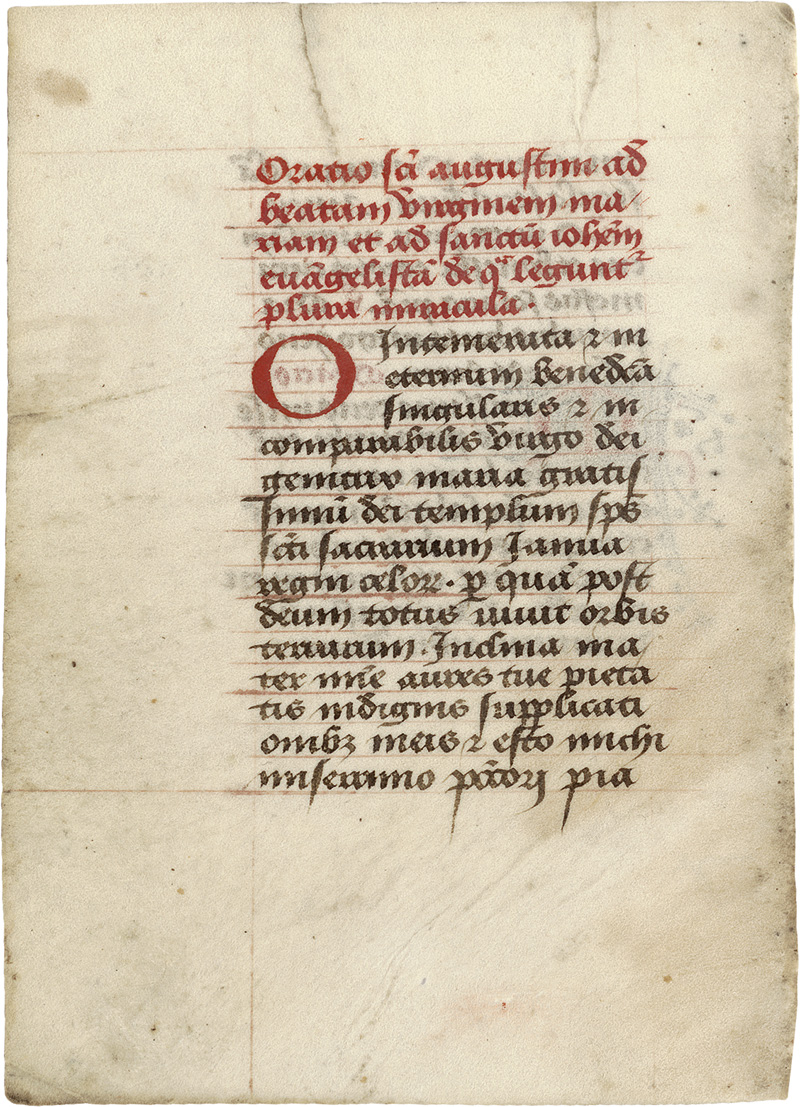 Oratio sc̄i augustini ad̄
beatam v̄irginem ma⸗
riam et ad sanctū ioh̄em
euāgelistā de qͣ legunt᷑
plura miracula·
O Intemerata ⁊ in
eternum bened̄cā
singularis ⁊ in
comparabilis v̄irgo dei
genitrix maria gratis
simū dei templum sp̄s
sc̄ti sacrarium Ianua
regni celoꝝ· ꝑ quā post
deum totus viuit orbis
terrarum· Inclina ma⸗
ter mīe aures tue pieta
tis indignis supplicati
onibꝫ meis ⁊ esto michi
miserrimo pc̄c̄ori pia